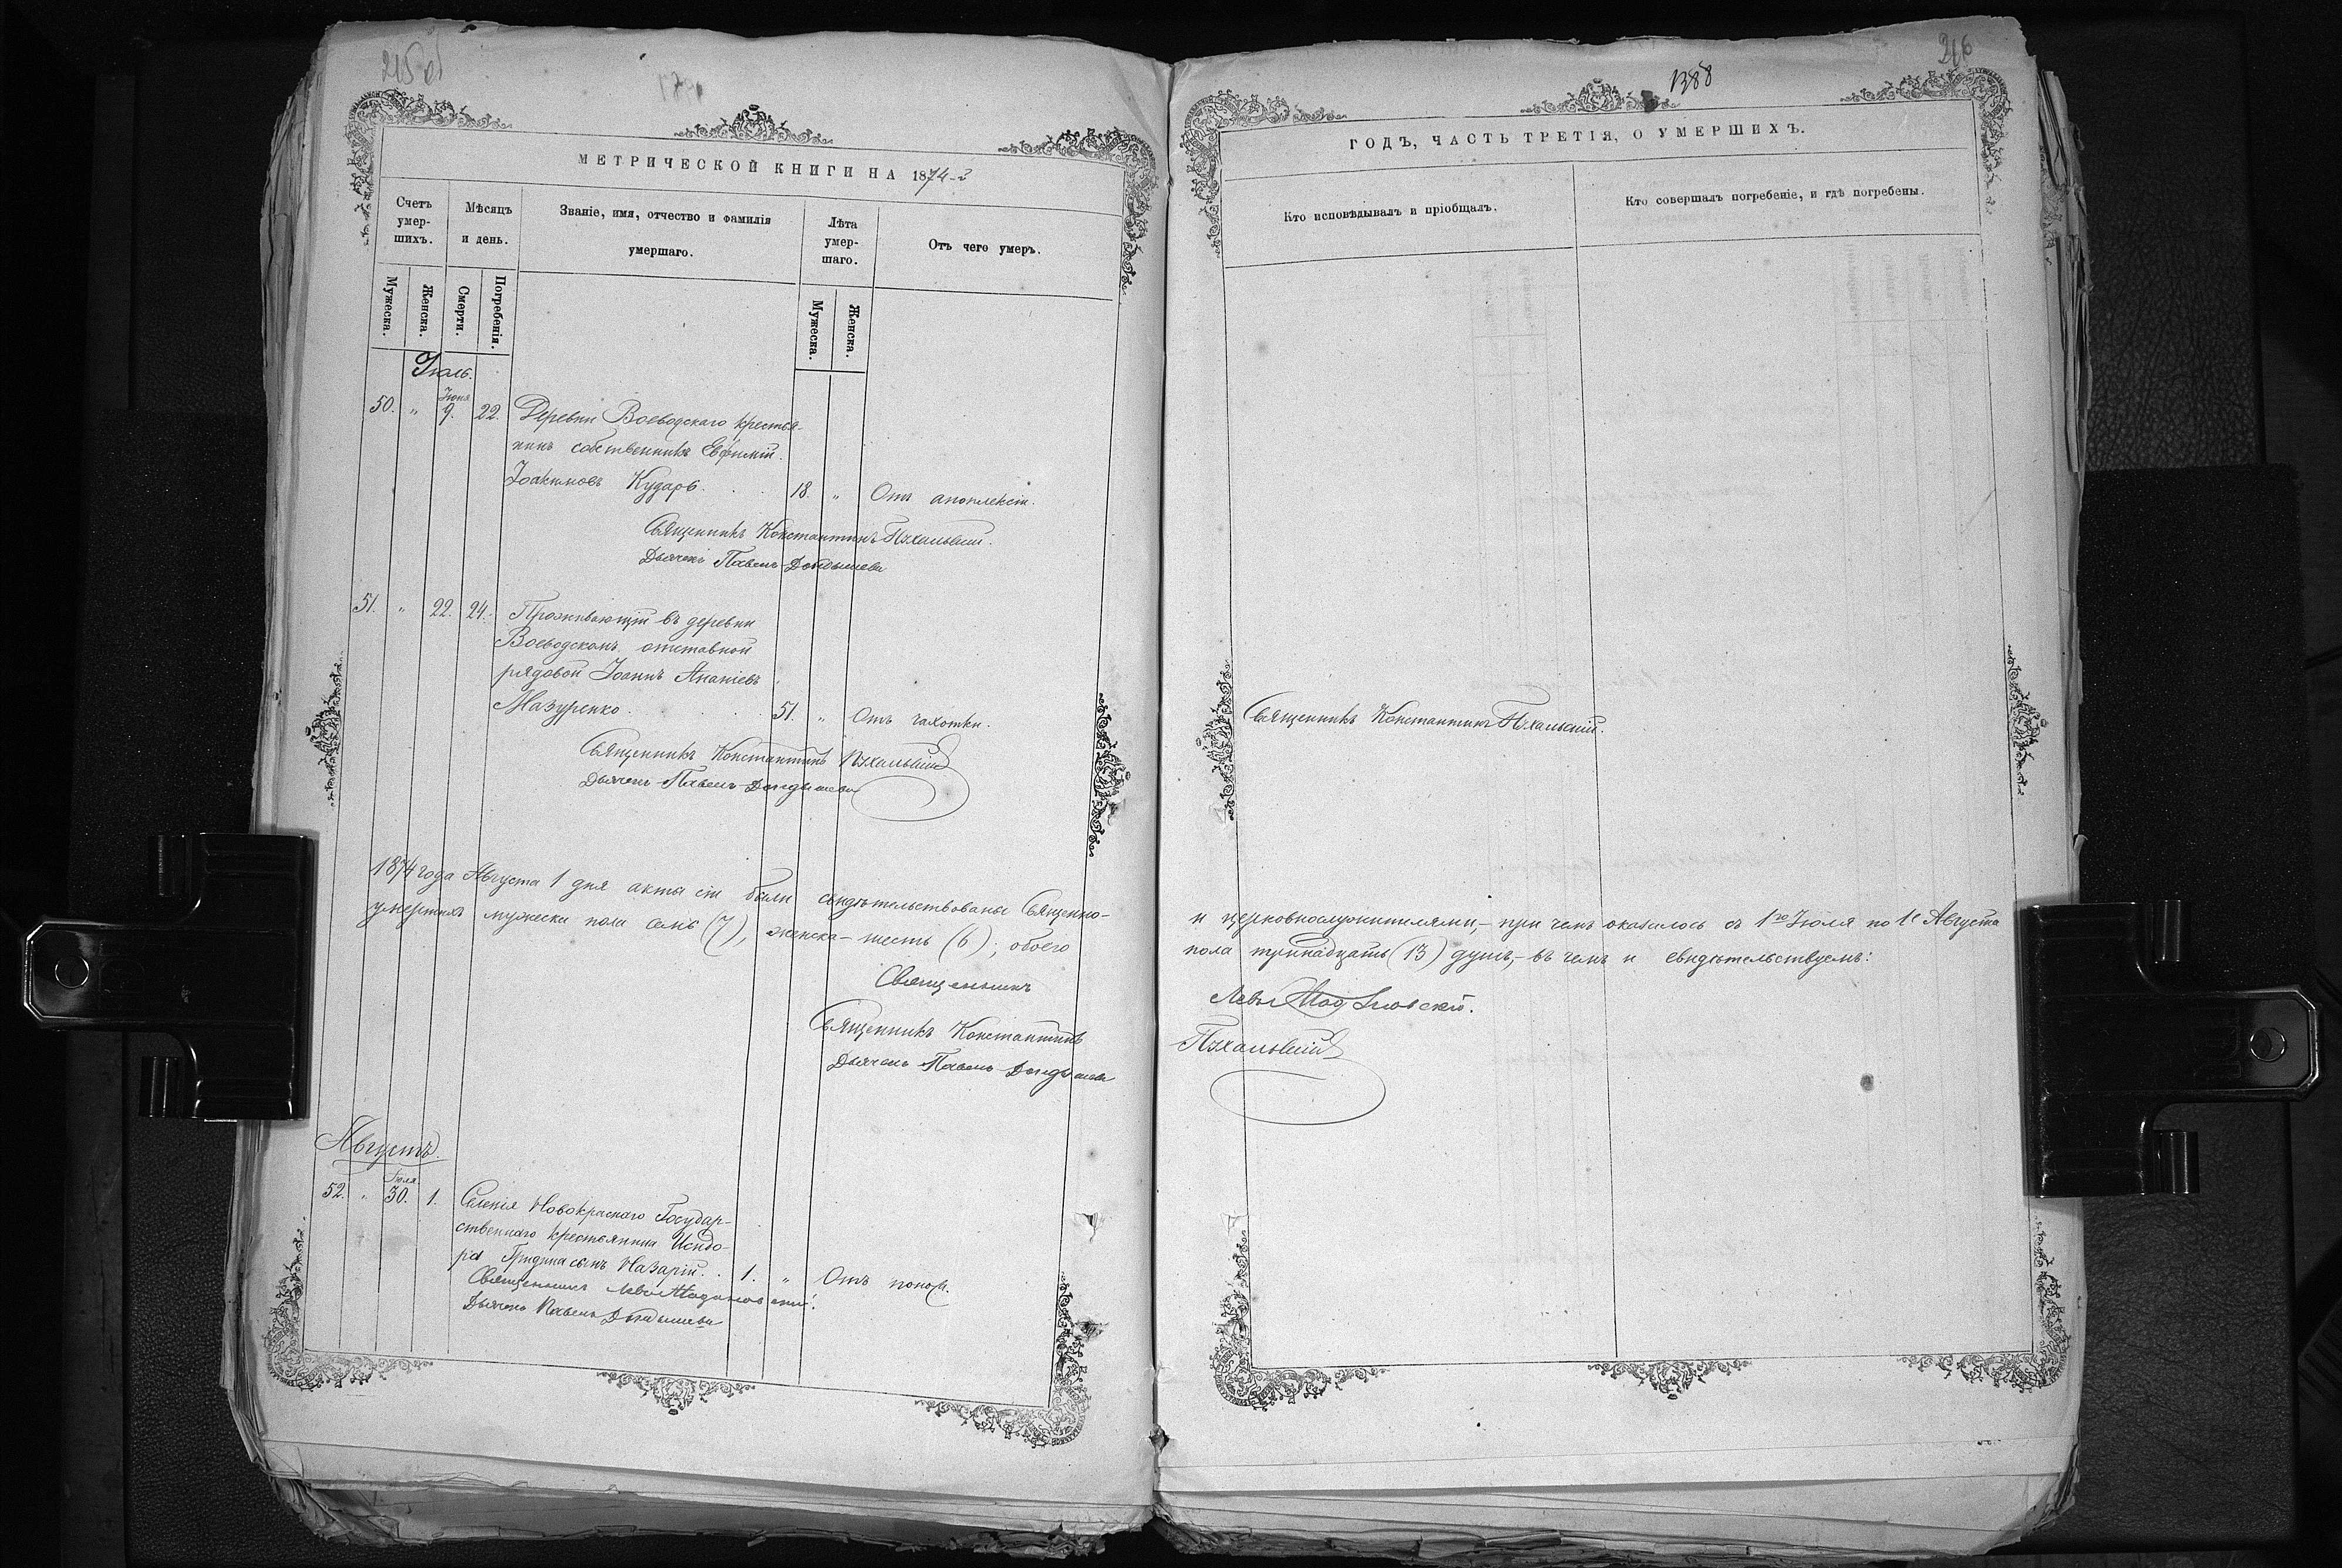 215 об
МЕТРИЧЕСКОЙ КНИГИ НА 1874-й
Счетъ умер-шихъ.
Мѣсяцъ и день.
Званіе, имя, отчество и фамилія умершаго.
Лѣта умер-шаго.
Отъ чего умеръ.
Мужеска.
Женска.
Смерти.
Погребенія.
Мужеска.
Женска.
Іюль.
Іюня
50. „ 9. 22. Деревни Воеводскаго крестья-
нинъ собственникъ Евфимій
Іоакимовъ Кударь. . . 18. „ Отъ апоплексіи.
Священникъ Константинъ Пѣхальскій.
Дьячекъ Павелъ
51. „ 22. 24. Проживающій въ деревни
Воеводскомъ отставной
рядовой Іоаннъ Ананіевъ
Мазуренко. 51. „ Отъ чахотки.
Священникъ Константинъ Пѣхальскій
Дьячекъ Павелъ
1874 года Августа 1 дня акты сіи были свидѣтельствованы Священно-
умершихъ мужеска пола семь (7), женска – шесть (6); обоего
Священникъ
Священникъ Константинъ
Дьячекъ Павелъ
Августъ.
Іюля
52. „ 30. 1. Селенія Новокраснаго Государ-
ственнаго крестьянина Исидо-
ра Гридина сынъ Назарій. . 1. „ Отъ поноса.
Священникъ Левъ
Дьячекъ Павелъ
1388
216
ГОДЪ, ЧАСТЬ ТРЕТІЯ, О УМЕРШИХЪ.
Кто исповѣдывалъ и пріобщалъ.
Кто совершалъ погребеніе, и гдѣ погребены.
Священникъ Константинъ Пѣхальскій.
и церковнослужителями, – при чемъ оказалось съ 1го Іюля по 1е Августа
пола тринадцать (13) душъ, – въ чемъ и свидѣтельствуемъ:
Левъ
Пѣхальскій